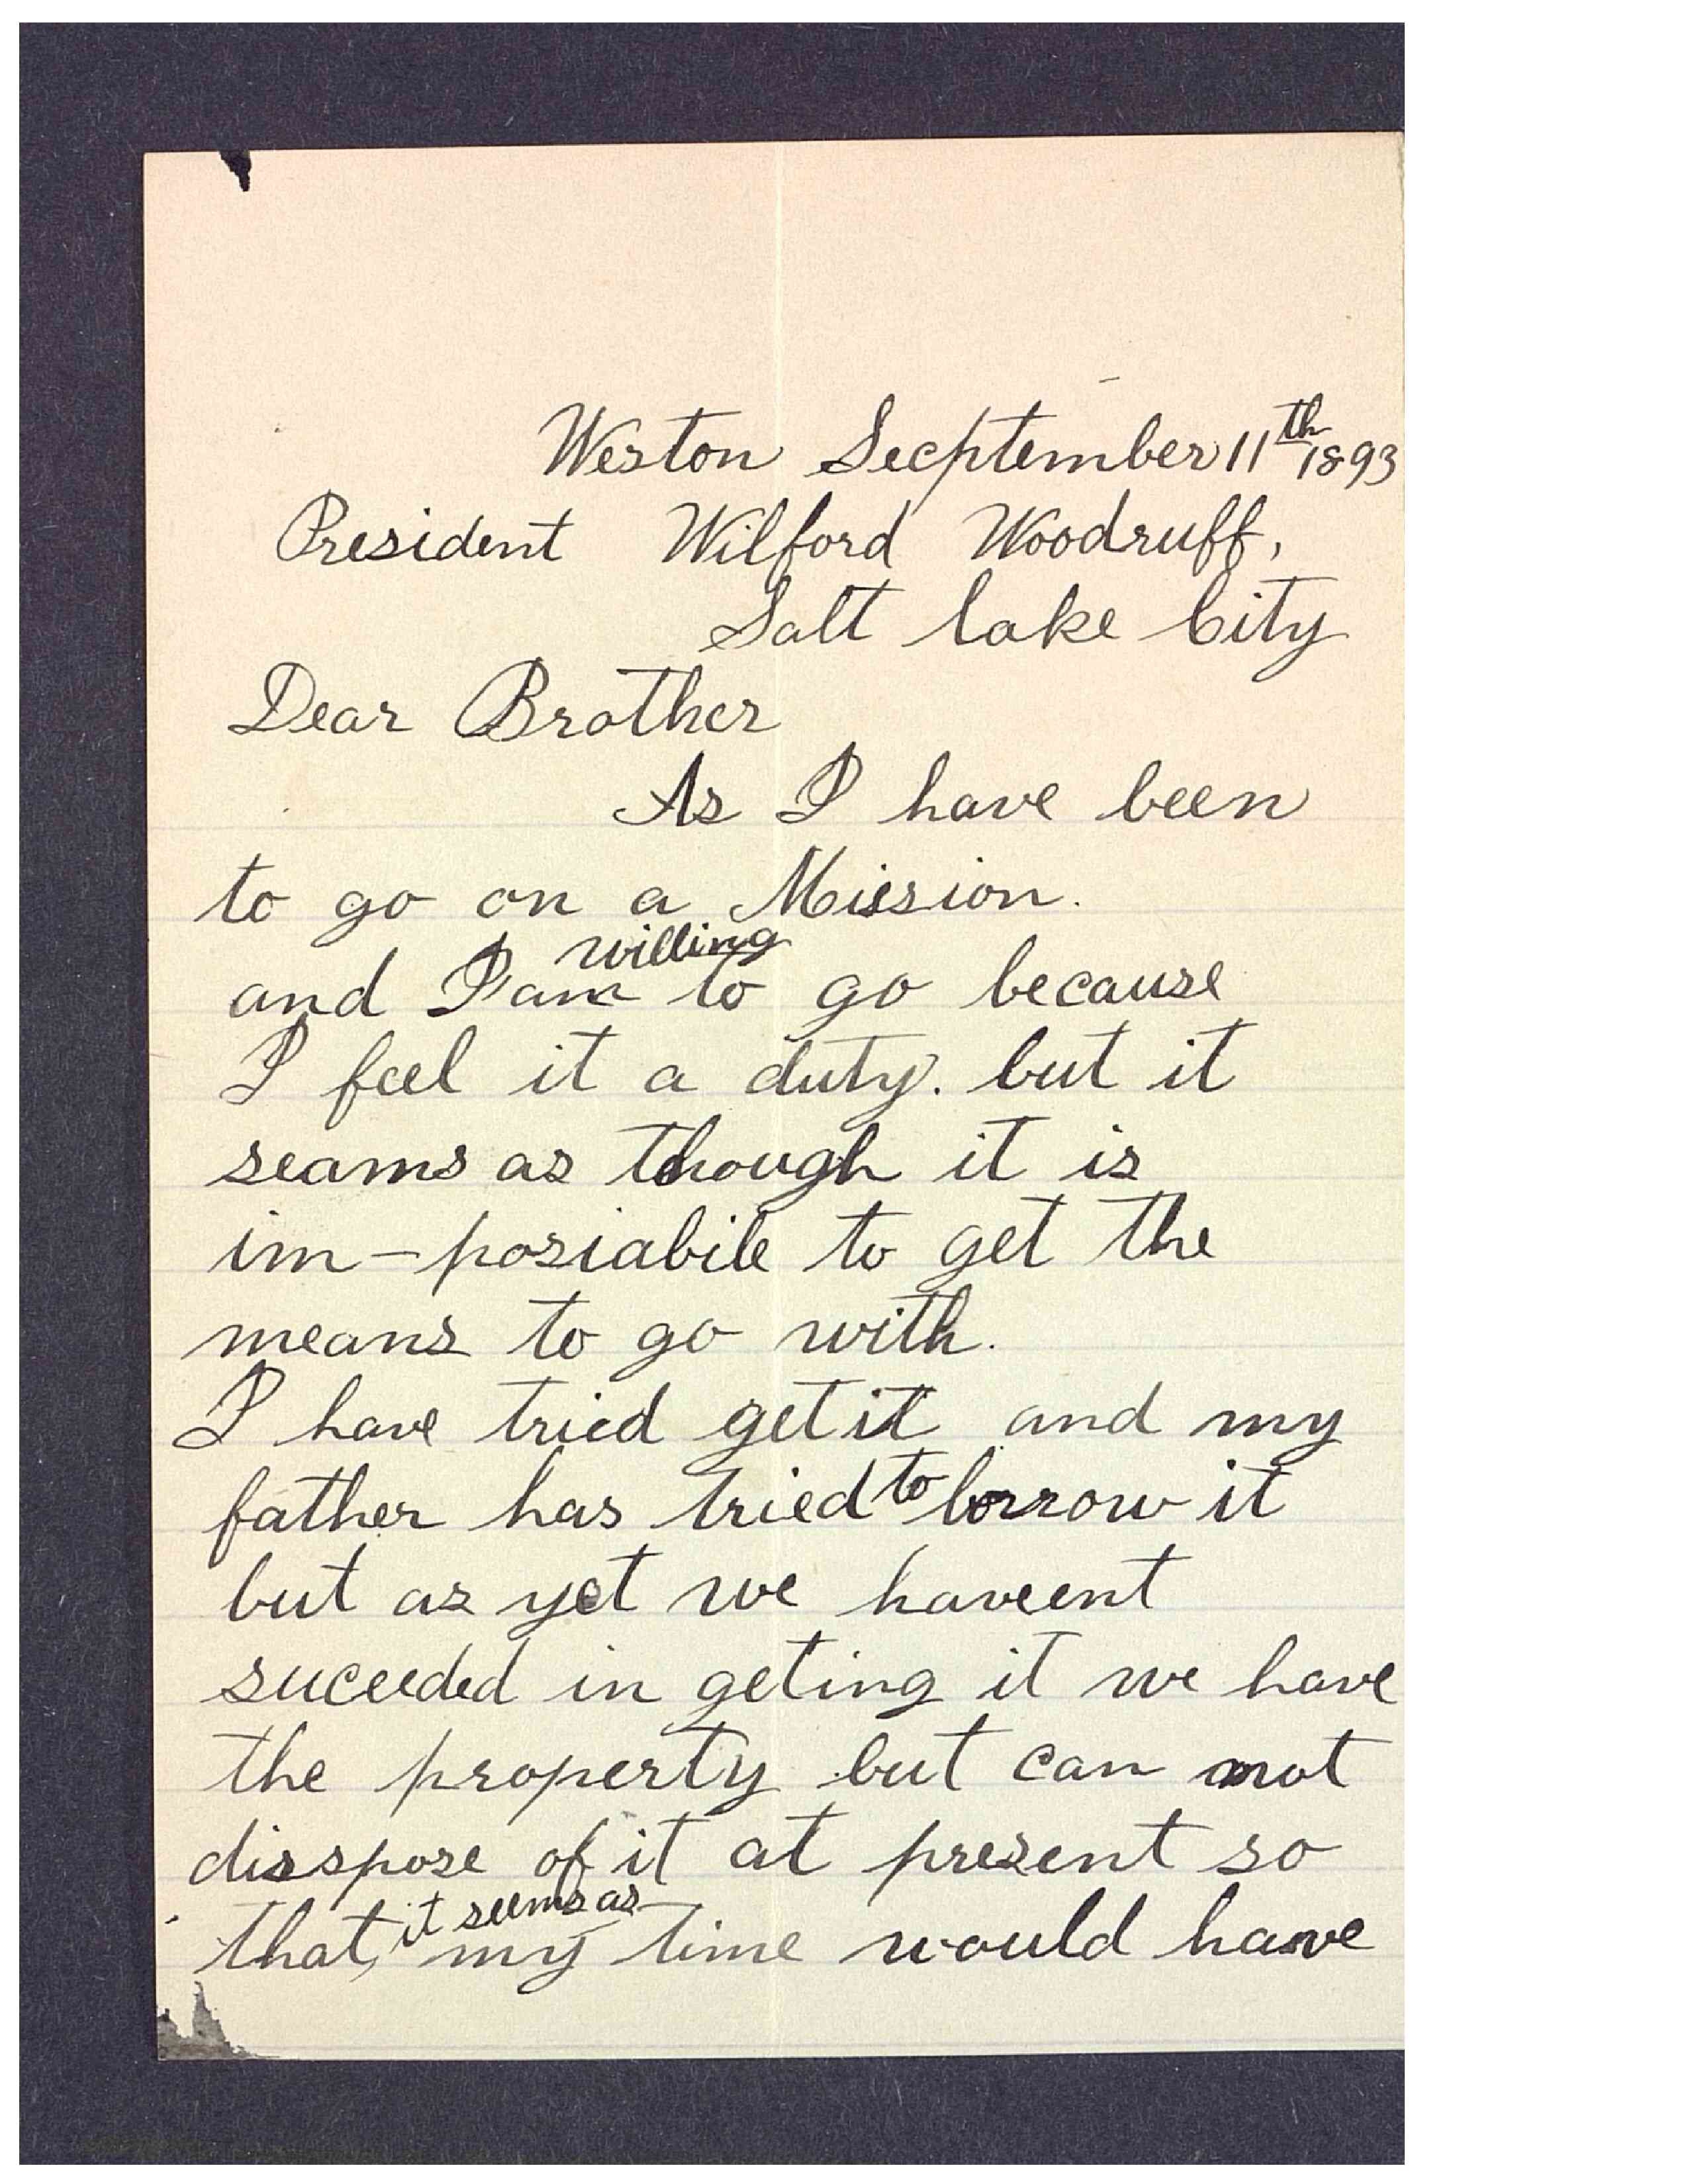 Weston Secptember 11th 1893
President Wilford Woodruff,
Salt lake City
Dear Brother
As I have been
to go on a Mission.
and I am willing to go because
I feel it a duty. but it
seams as though it is
im-posiabile to get the
means to go with.
I have tried get it and my
father has tried to borrow it
but as yet we haveent
suceeded in geting it we have
the property but can not
disspose of it at present so
that, it seems as my time would have